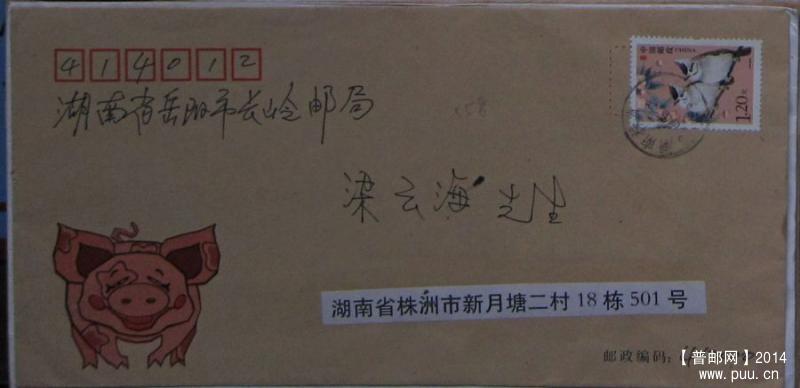 中国邮政 CHINA
1.20元
414012
湖南省岳阳市长岭邮局
梁云海 先生
湖南省株洲市新月塘二村 18 栋 501 号
邮政编码：
【普邮网】2014
www.puu.cn